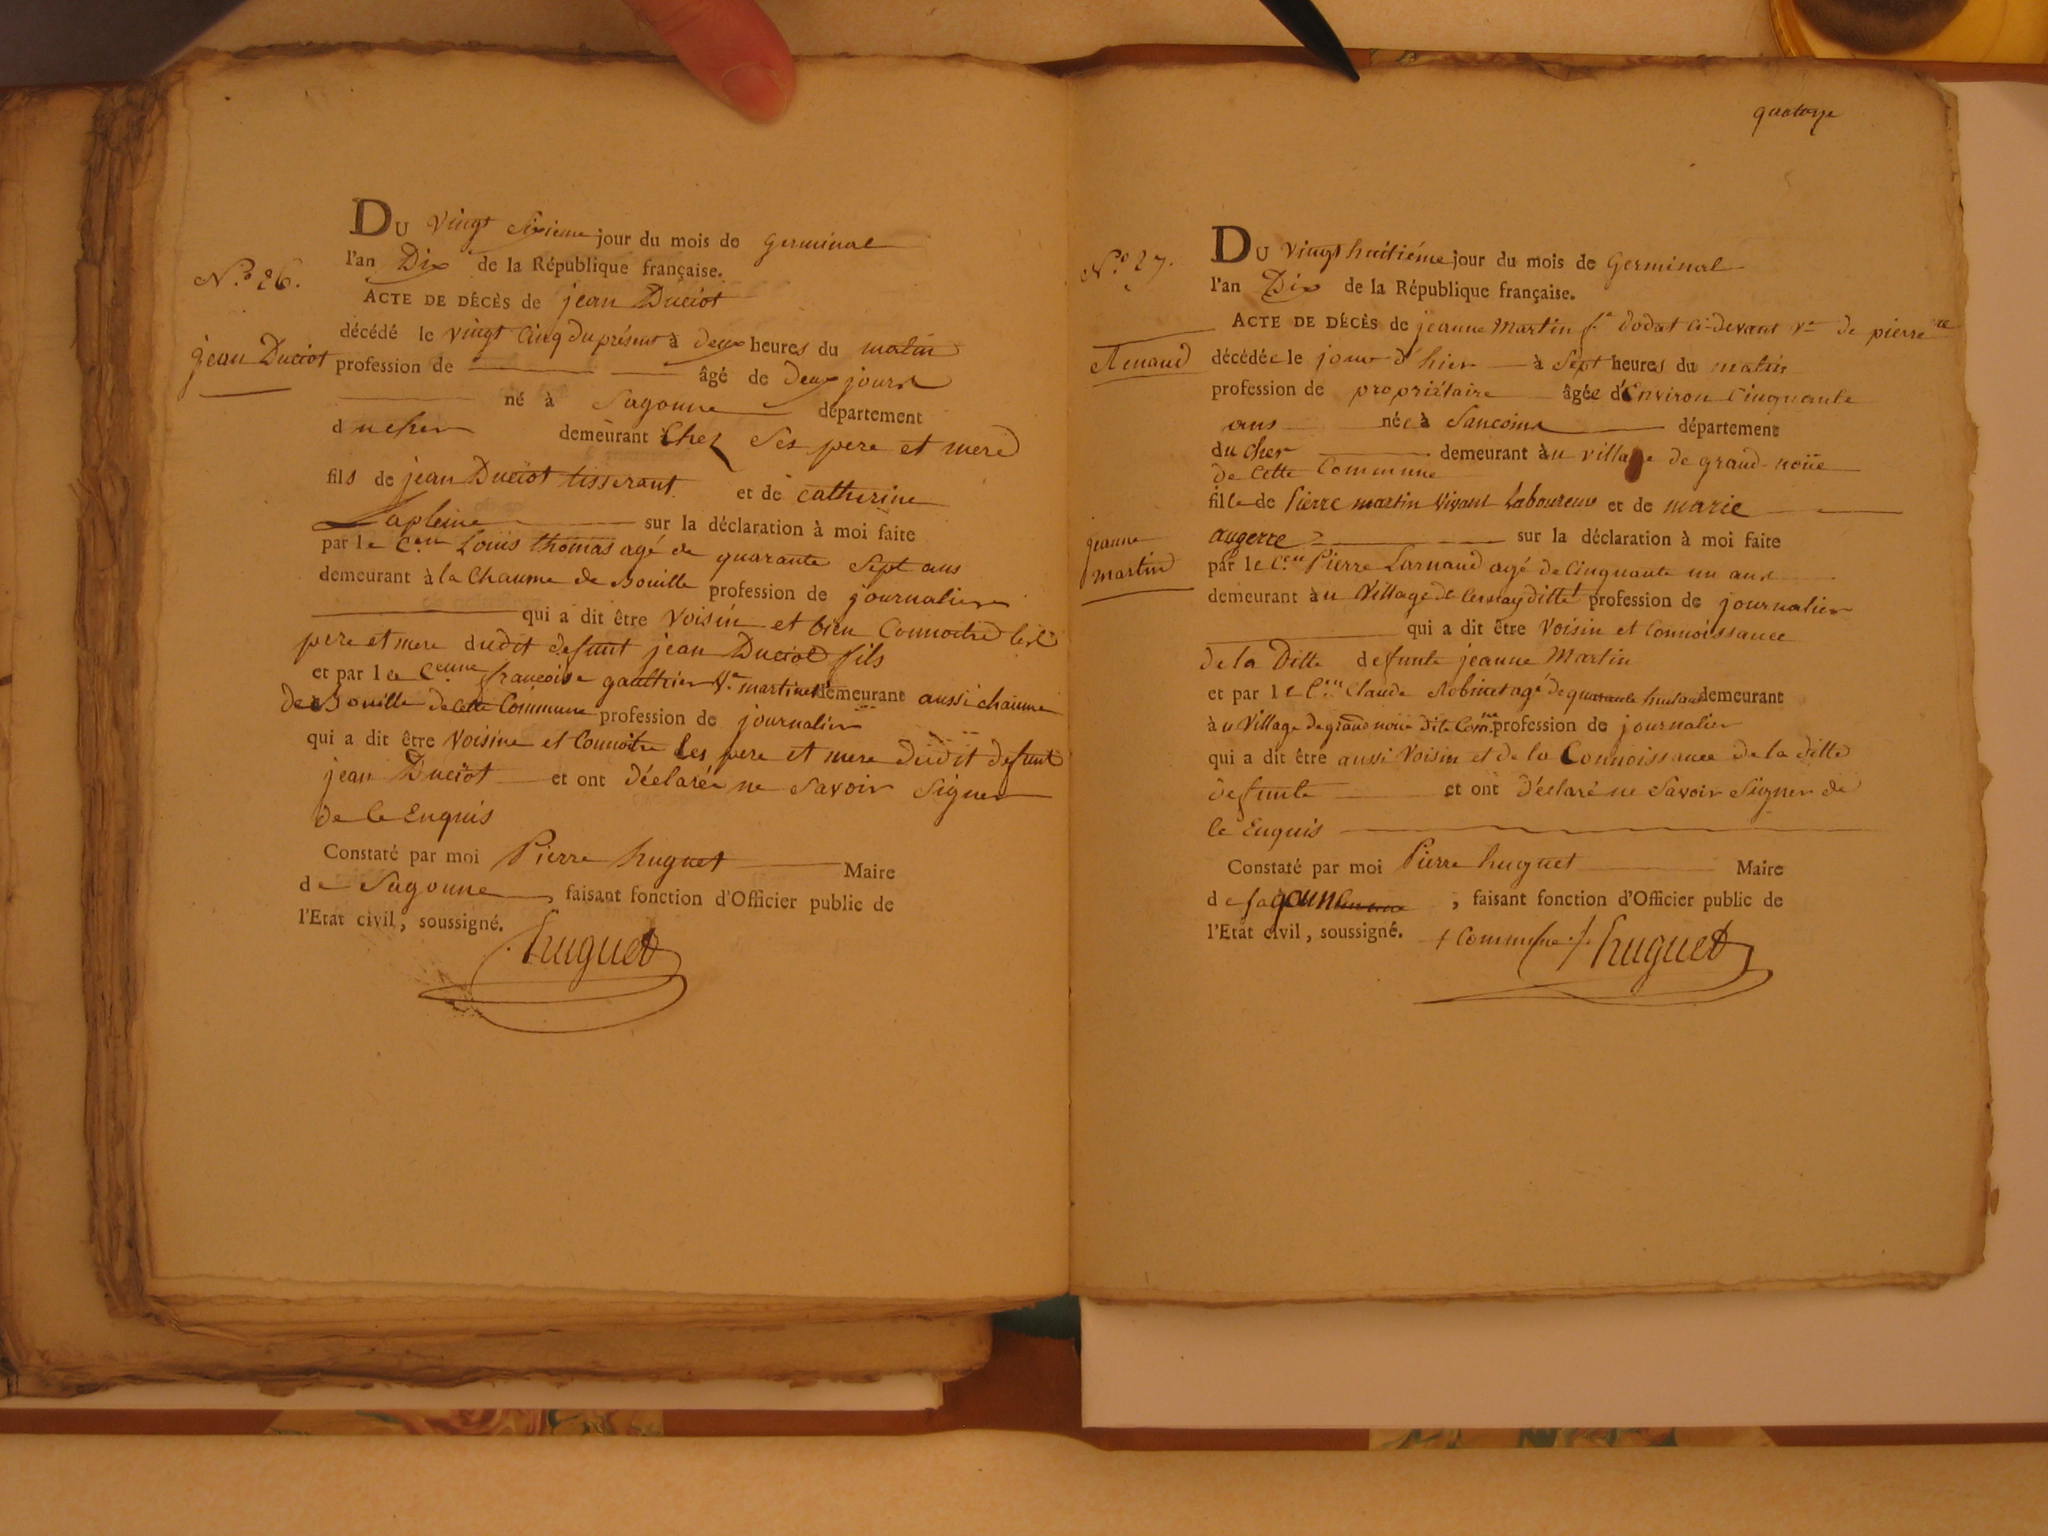 Du vingt Sixieme jour du mois de germinal
l'an Dix de la République française.
N.o 26.
Acte de décès de jean Duciot
décédé le vingt Cinq du présent à deux heures du matin
jean Duciot
profession de âgé de Deux jours
né à Sagonne département
ducher demeurant Chez Ses pere et mere
fils de jean Duciot tisserant et de catherine
Lapleine sur la déclaration à moi faite
par le C.en Louis thomas agé de quarante Sept ans
demeurant à la Chaume de Bouille profession de journalier
qui a dit être Voisin et bien Connoitre les
pere et mere dudit defunt jean Duciot fils
et par la C.enne francoise gaulthier V.e martinet demeurant aussi chaume
de Bouille de cette Commune profession de journalier
qui a dit être Voisine et Connoitre les pere et mere dudit defunt
jean Duciot et ont déclarée ne Savoir Signer
de ce Enquis
Constaté par moi Pierre huguet Maire
de Sagonne faisant fonction d'Officier public de
l'Etat civil, soussigné.
huguet
quatorze
Du Vingt huitiéme jour du mois de Germinal
N.o 27.
l'an Dix de la République française.
Acte de décès de jeanne Martin f.e dodat Ci-devant V.e de pierre
Renaud
décédée le jour d'hier à Sept heures du matin
profession de propriétaire âgée d'Environ Cinquante
ans née à Sancoins département
du Cher demeurant au village de grand noüe
de Cette Commune
fille de Pierre martin Vivant Laboureur et de marie
jeanne
martin
augerre sur la déclaration à moi faite
par le C.en Pierre Larnaud agé de Cinquante un ans
demeurant au Village de profession de journalier
qui a dit être Voisin et Connoissance
de la Ditte defunte jeanne Martin
et par le C.en Claude Robinet agé de quarante huit ans demeurant
au Village de grand noüe dite Com.ne profession de journalier
qui a dit être aussi Voisin et de la Connoissance de la ditte
defunte et ont déclaré ne Savoir Signer de
ce Enquis
Constaté par moi Pierre huguet Maire
de sagonne ; faisant fonction d'Officier public de
l'Etat civil, soussigné. + Commune
huguet